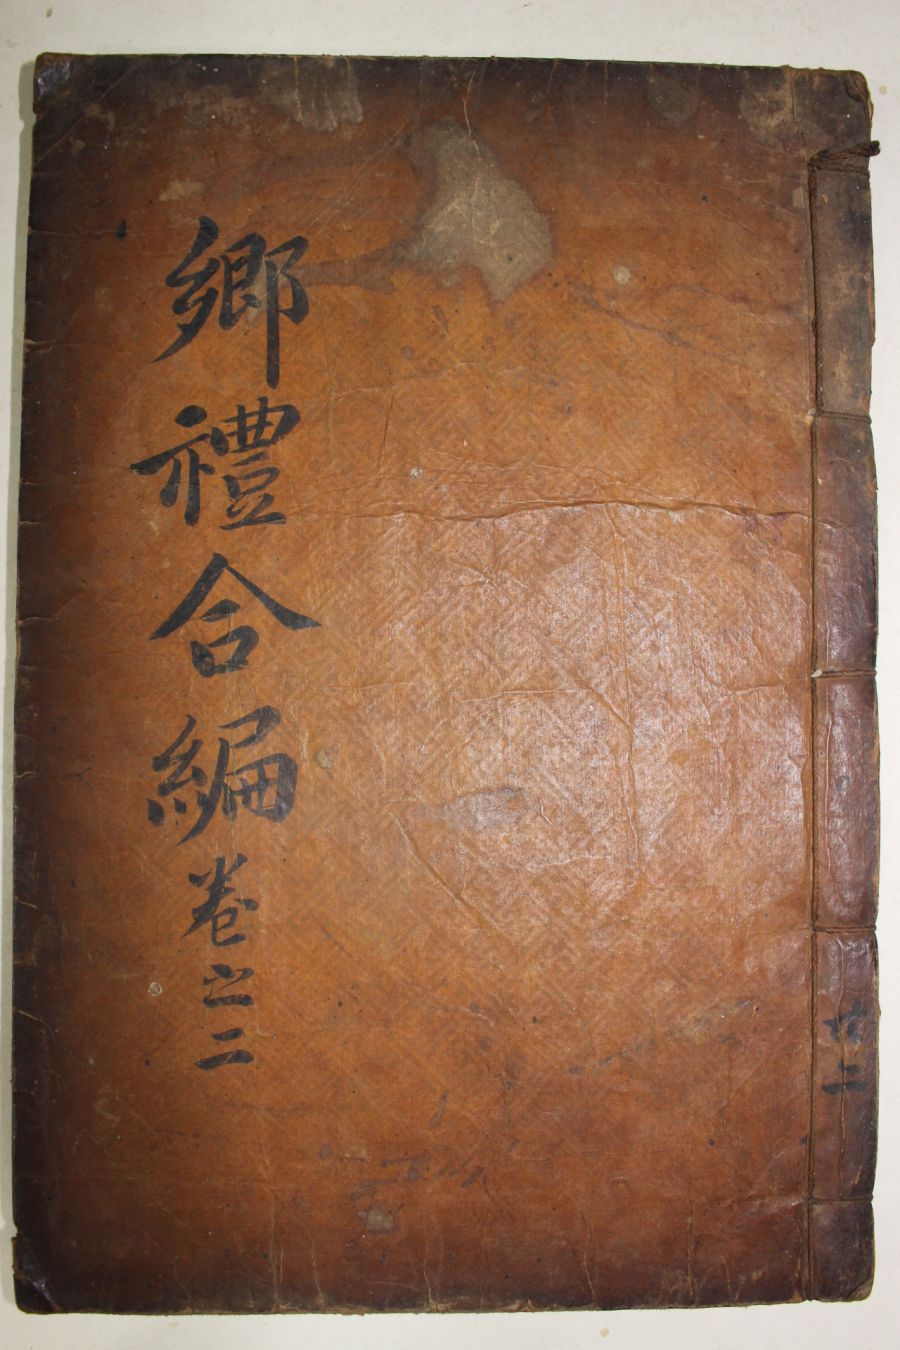 鄉禮合編卷之二
共二